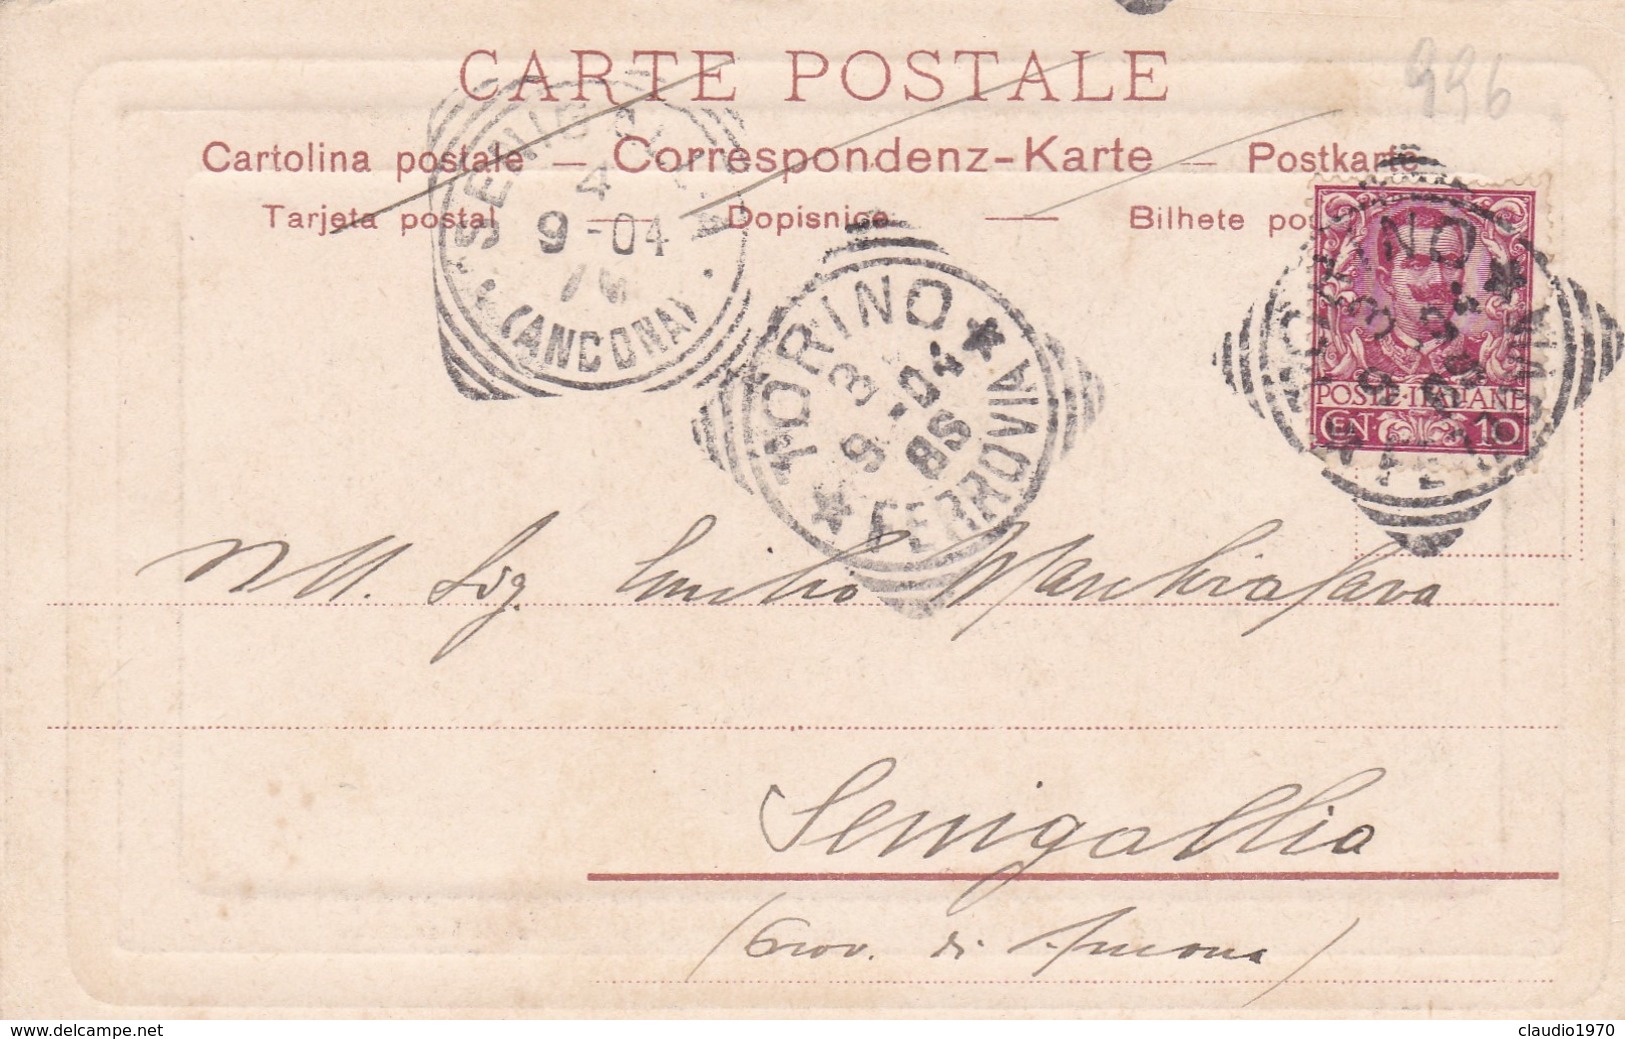 CARTE POSTALE
996
Cartolina postale — Correspondenz-Karte — Postkarte
Tarjeta postal — Dopisnice — Bilhete pos
SENIGALLIA
4
9-04
(ANCONA)
TORINO
3
9-04
8S
FERROVIA
TORINO
FERROVIA
POSTE·ITALIANE
CEN.T 10
Sig. Emilio Marchiafava
Senigallia
(Prov. di Ancona)
www.delcampe.net
claudio1970